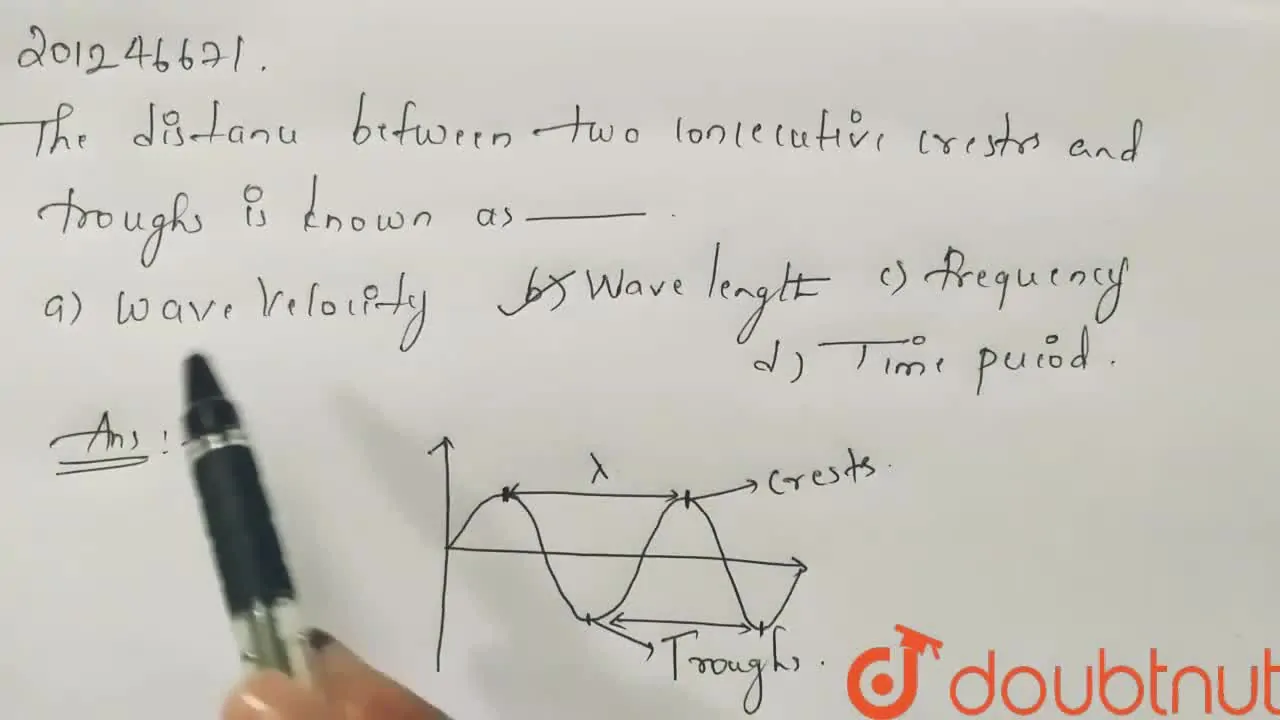 201246671.
The distance between two consecutive crests and
troughs is known as ———.
a) Wave Velocity b) Wave length c) frequency
d) Time period.
Ans :
λ
Crests.
Troughs.
doubtnut